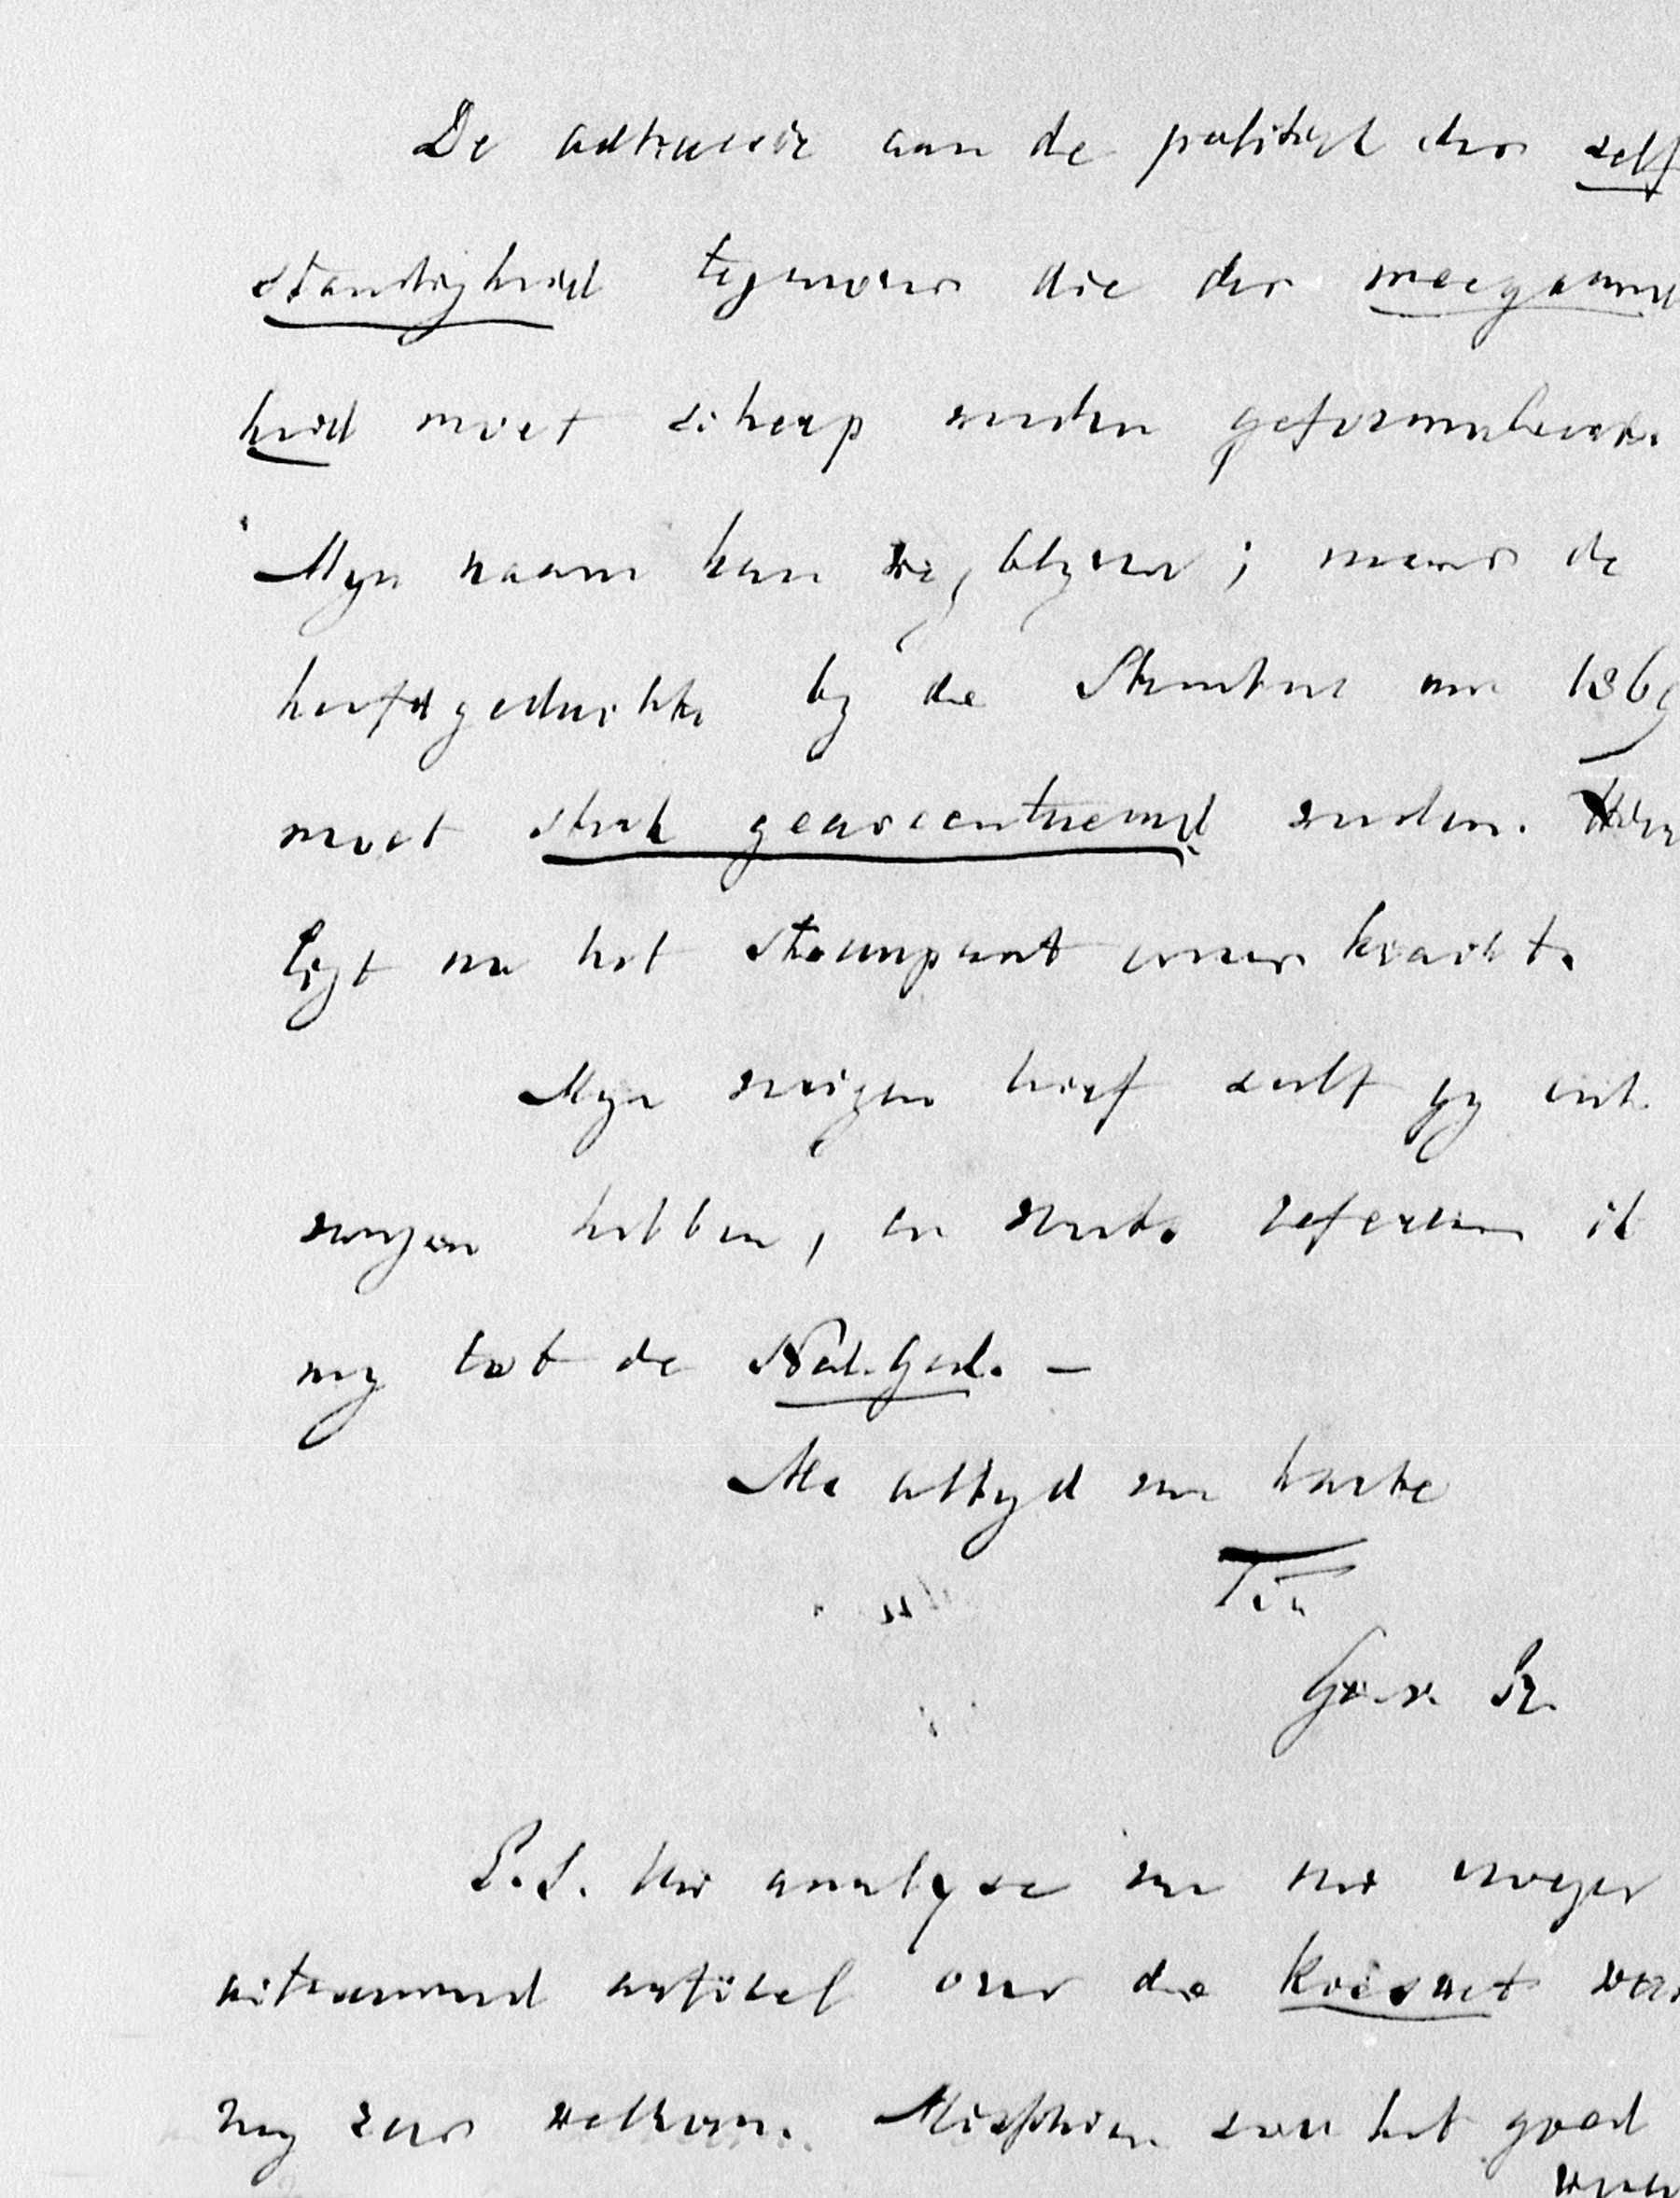 De adhaesie aan de politiek der zelf
standigheid tegenover die der meegaand
heid moet scherp worden geformuleerd.
Myn naam kan weg blyven; maar de
hoofdgedachte by de Stembus van 1869
moet sterk geaccentueerd worden. Hier
ligt nu het steunpunt onzer kracht.
Myn vorigen brief zult gy ont
vangen hebben, en verder refereer ik
my tot de Ned. Ged. —
Me altyd van harte
Gr. v. Pr.
P.S. Uw analyse van uw vroeger
uitnemend artikel over de Kieswet was
my zeer welkom. Misschien zou het goed